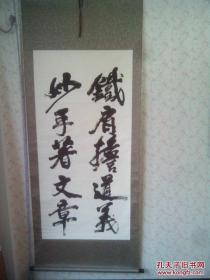 鐵肩擔道義
妙手著文章
孔夫子旧书网